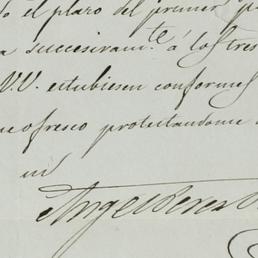 o el plazo del primer
a sucesivam.te á los tres
V.V. estubiesen conformes
ofresco protestandome
un
Angel Perez